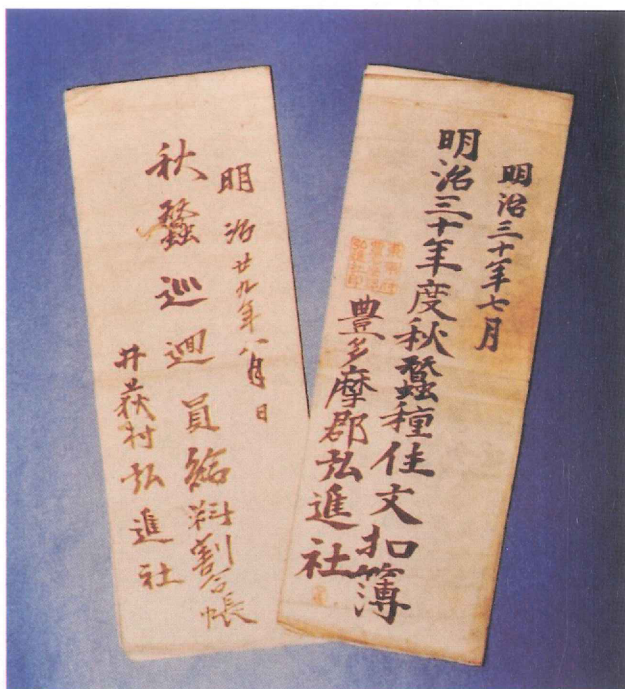 明治三十年七月
明治三十年度秋蠶種住文扣簿
豊多摩郡弘進社
明治廿九年八月 日
秋蠶巡廻員給料割合帳
井荻村弘進社